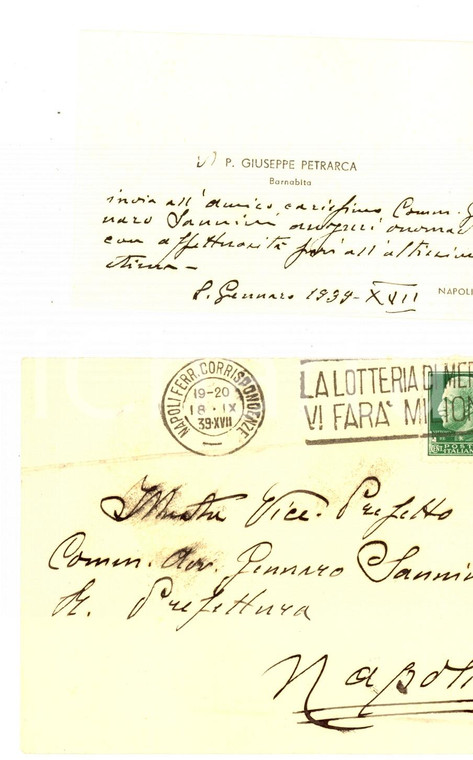 P. GIUSEPPE PETRARCA
Barnabita
invia all'amico carissimo, Comm. Gen
naro Sannini, auguri onomas
con affettuosità pari all'altissima
stima –
S. Gennaro 1939-XVII
NAPOLI
NAPOLI FERR. CORRISPONDENZE
19-20
18·IX
39·XVII
LA LOTTERIA DI MER
VI FARA' MILION
POSTE
ITALIANE
Illustre Vice. Prefetto
Comm. Avv. Gennaro Sannini
R. Prefettura
Napoli